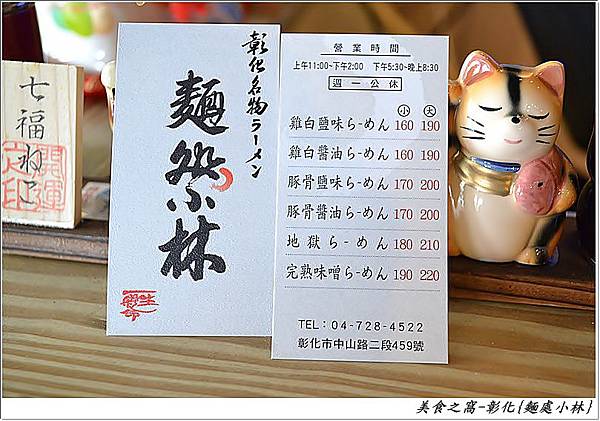 七福ねこ
開運
彰化名物ラーメン
麵処小林
營業時間
上午11:00~下午2:00 下午5:30~晚上8:30
週一公休
小 大
雞白鹽味らーめん 160 190
雞白醬油らーめん 160 190
豚骨鹽味らーめん 170 200
豚骨醬油らーめん 170 200
地獄らーめん 180 210
完熟味噌らーめん 190 220
TEL: 04-728-4522
彰化市中山路二段459號
美食之窩-彰化{麵處小林}